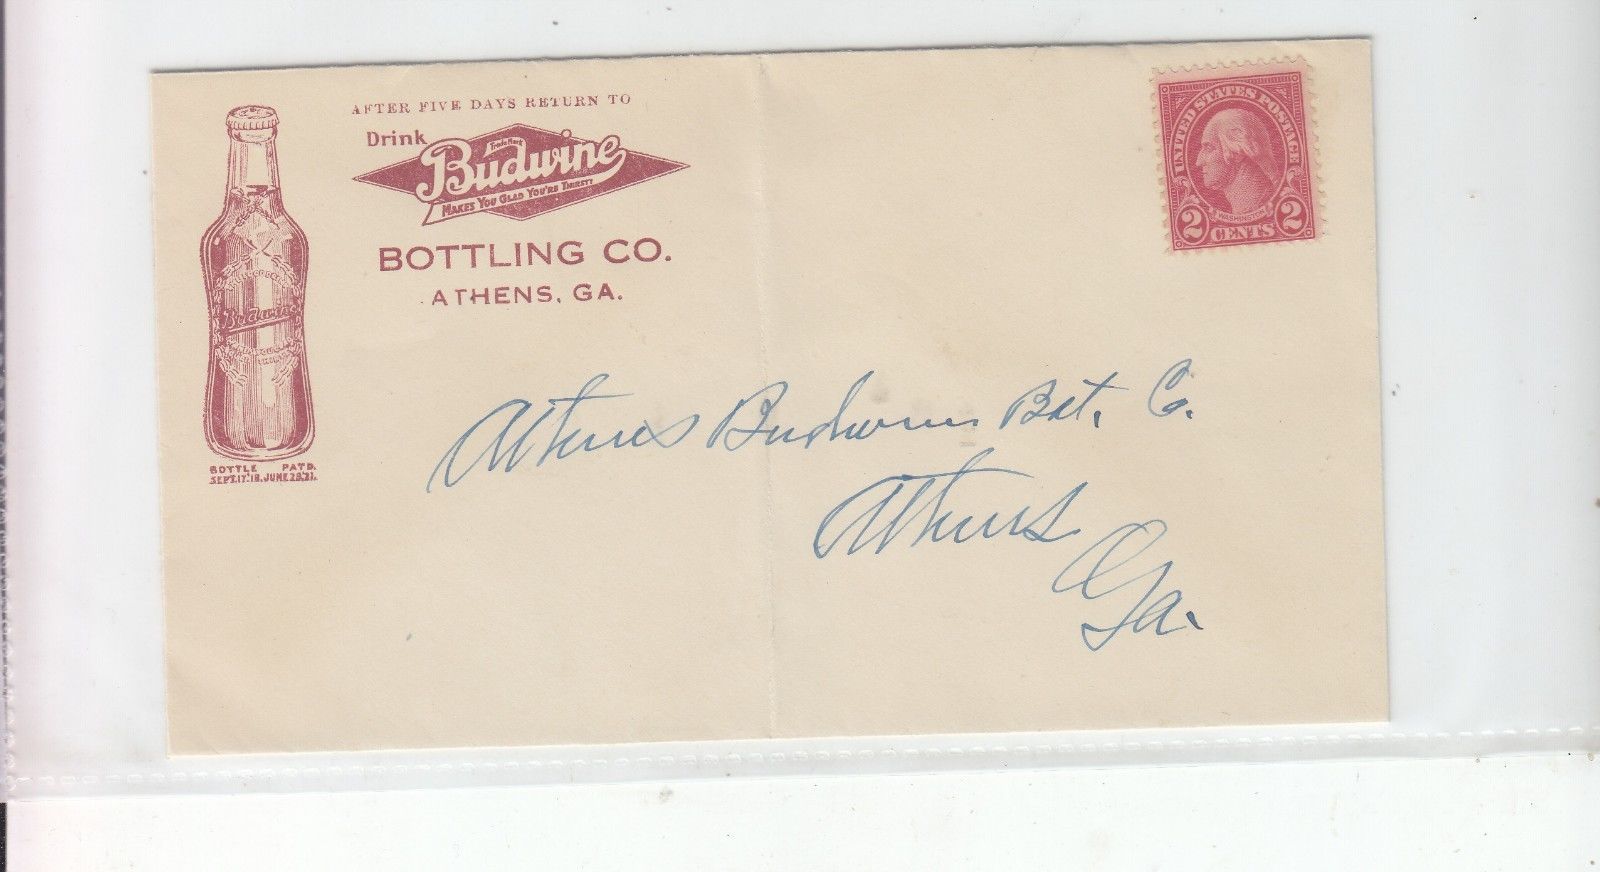 AFTER FIVE DAYS RETURN TO
Drink
Trade Mark
Budwine
MAKES YOU GLAD YOU'RE THIRSTY
BOTTLING CO.
ATHENS, GA.
Budwine
BOTTLE PATD.
SEPT.17.'18. JUNE 28,'21.
UNITED STATES POSTAGE
WASHINGTON
2 CENTS 2
Athens Budwine Bot. Co.
Athens
Ga.